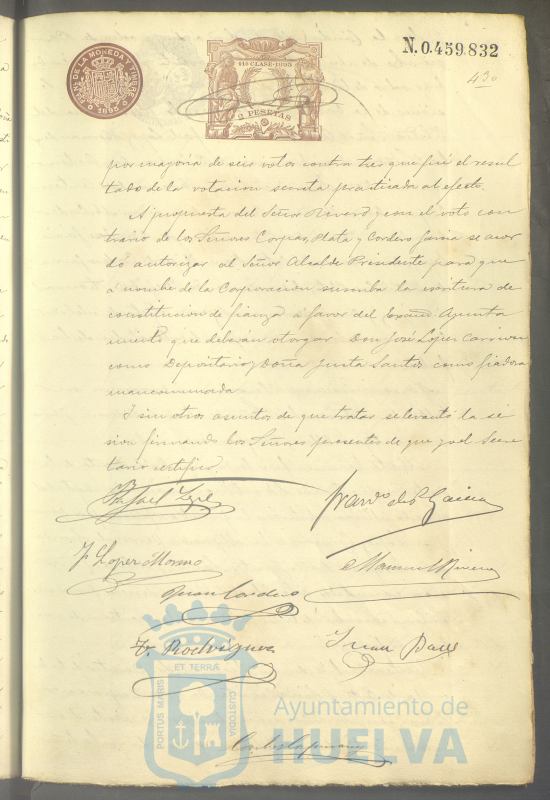 FCA. NAL. DE LA MONEDA Y TIMBRE
1895
11ª CLASE-1895
2 PESETAS
N.0.459.832
430
por mayoria de seis votos contra tres que fué el resul
tado de la votacion secreta practicada al efecto.
A propuesta del Señor Rivero y con el voto con
trario de los Señores Corpas, Plata y Cordero Garcia se acor
dó autorizar al Señor Alcalde Presidente para que
á nombre de la Corporacion suscriba la escritura de
constitucion de fianza á favor del Excmo Ayunta
miento que deberán otorgar Don José López Carrion
como Depositario y Doña Justa Santos como fiadora
mancomunada
I sin otros asuntos de que tratar se levantó la se
sion firmando los Señores presentes de que yo el Secre
tario certifico.
Rafael
Garcia
J Lopez Moreno
Manuel Rivero
Juan Cordero
Fr Rodriguez
Juan
PORTUS MARIS
ET TERRÆ
CUSTODIA
Ayuntamiento de
HUELVA